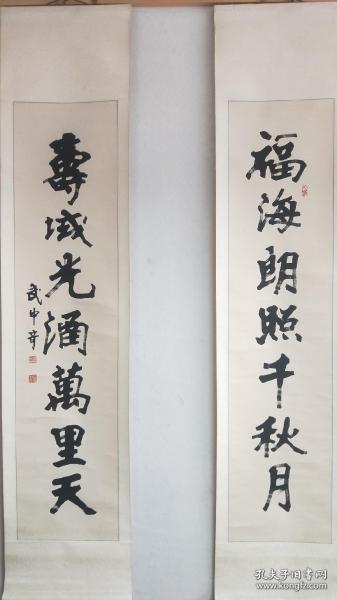 福海朗照千秋月
壽域光涵萬里天
武中奇
孔夫子旧书网